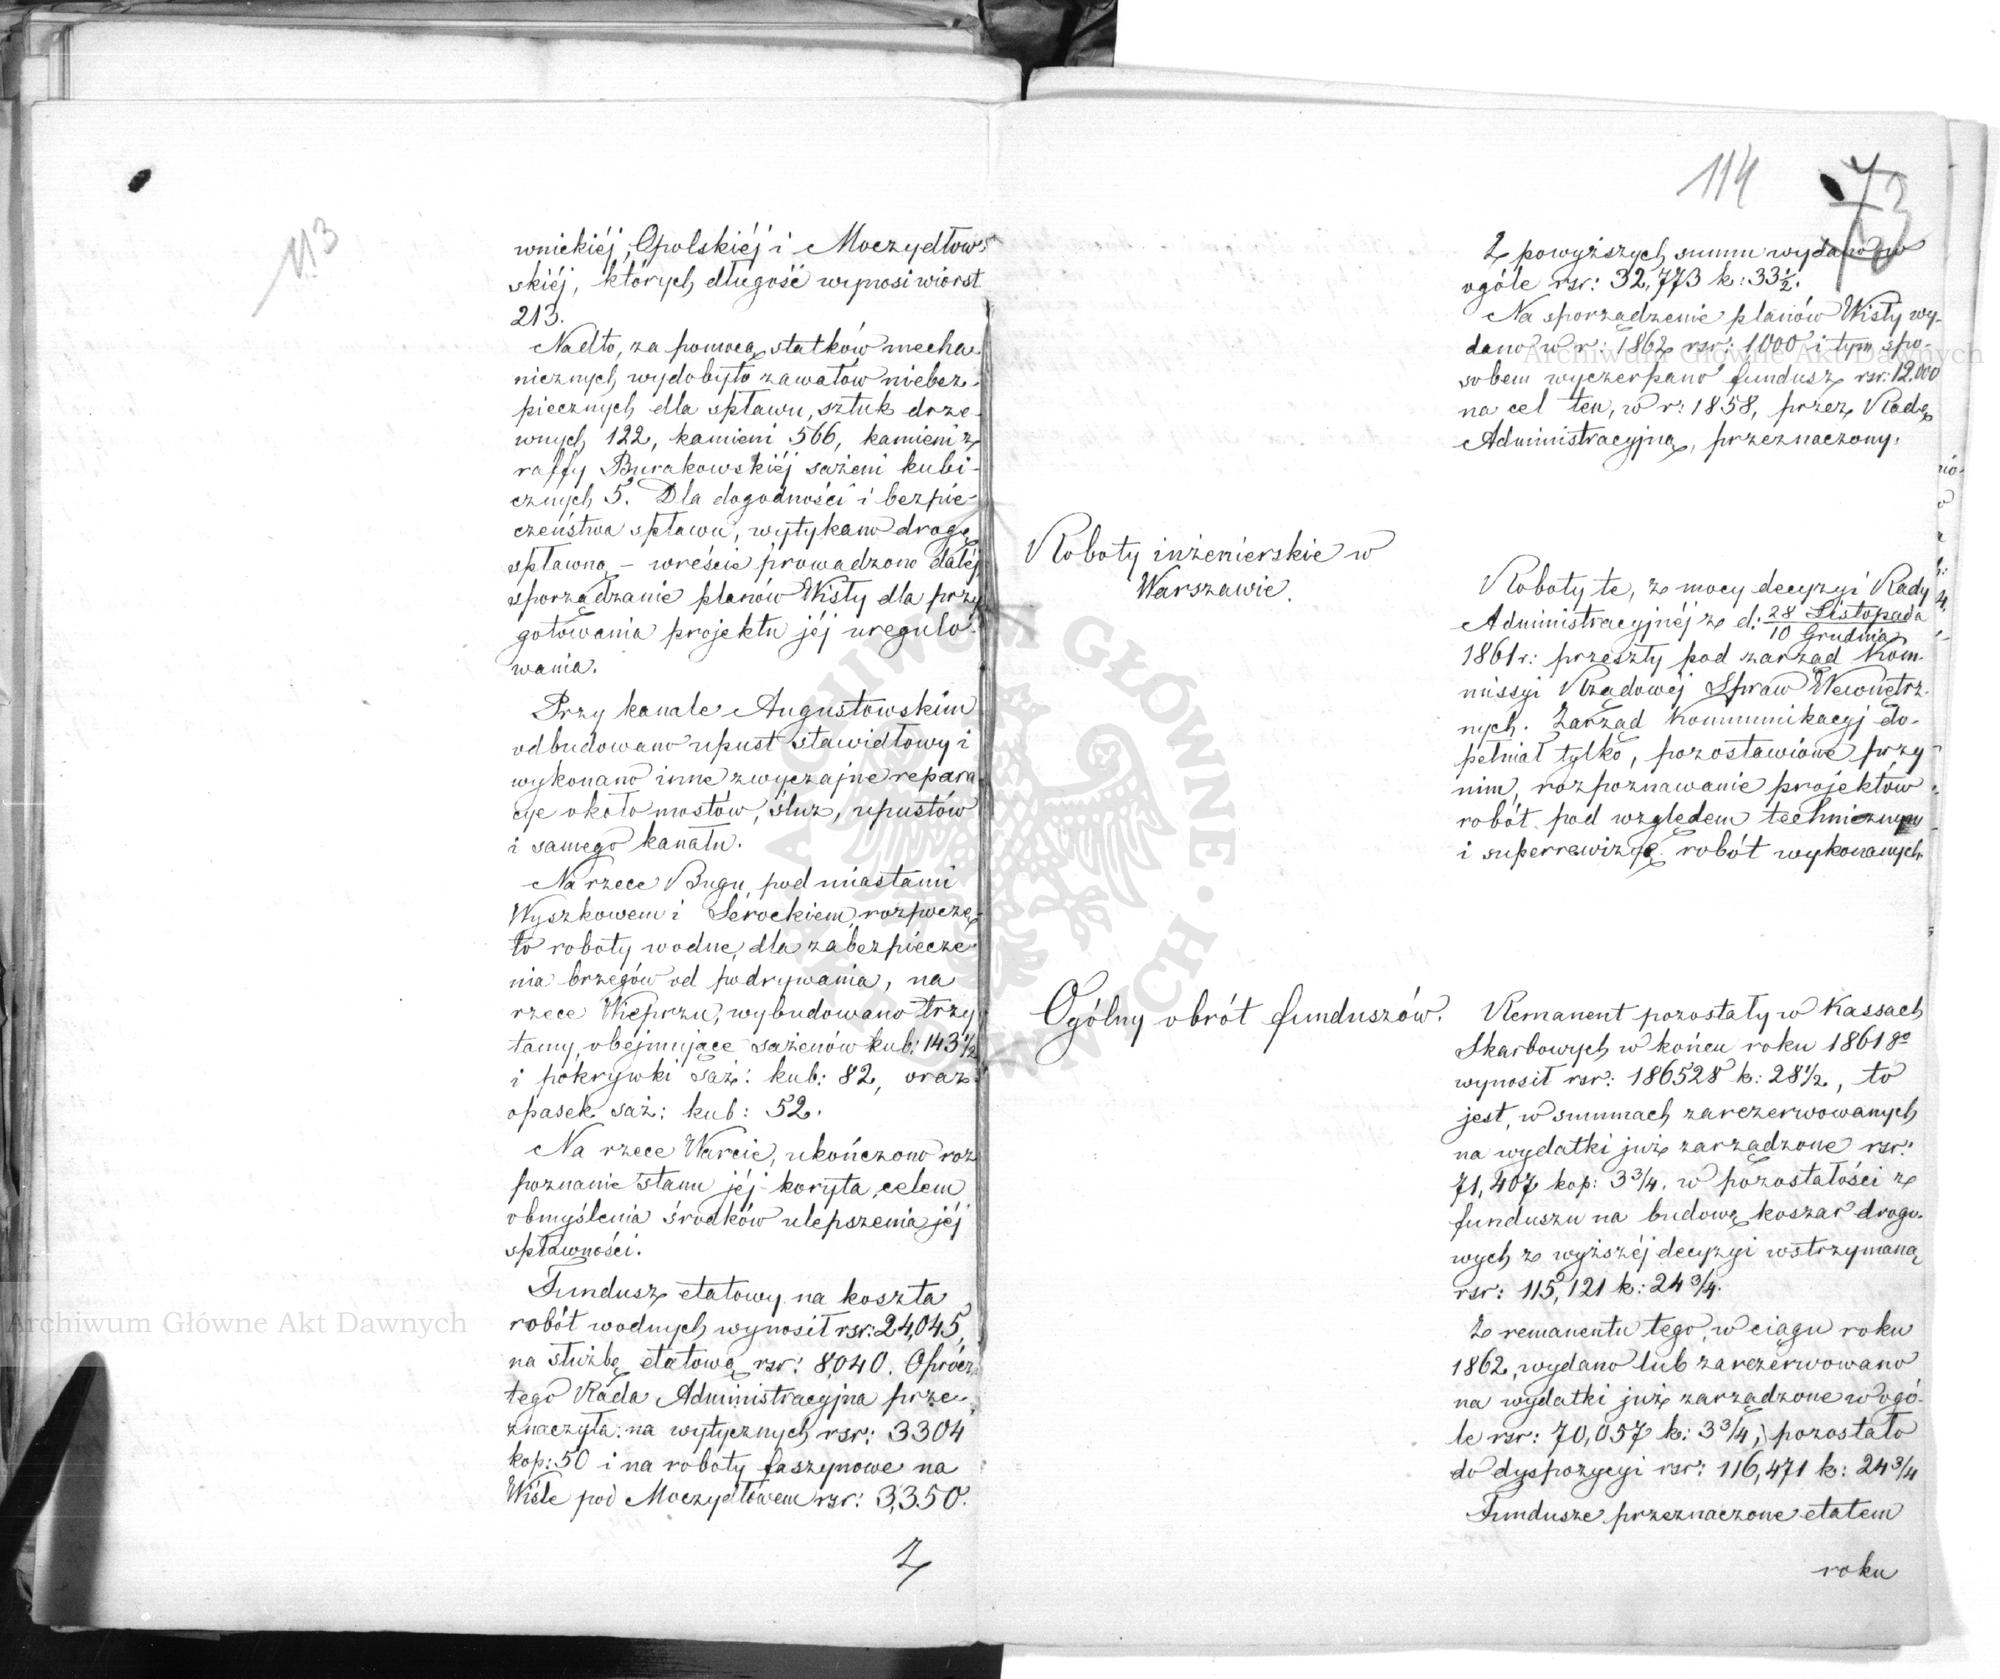 113
wnickiéj, Opolskiéj i Moczydłow-
skiéj, których długość wynosi wiorst
213.
Nadto, za pomocą statków mecha-
nicznych wydobyto zawałów niebez-
piecznych dla spławu, sztuk drze-
wnych 122, kamieni 566, kamieni z
raffy Burakowskiéj sażeni kubi-
cznych 5. Dla dogodności i bezpie-
czeństwa spławu, wytykano drogę
spławną – wreście prowadzono daléj
sporządzanie planów Wisły dla przy
gotowania projektu jéj uregulo-
wania.
Przy kanale Augustowskim
odbudowano upust stawidłowy i
wykonano inne zwyczajne repara-
cye około mostów, śluz, upustów
i samego kanału.
Na rzece Bugu, pod miastami
Wyszkowem i Serockiem, rozpoczę-
to roboty wodne, dla zabezpiecze-
nia brzegów od podrywania, na
rzece Wieprzu, wybudowano trzy
tamy, obejmujące sażenów kub: 143 1/2
i pokrywki saż: kub: 82, oraz
opasek saż: kub: 52.
Na rzece Warcie, ukończono roz
poznanie stanu jéj koryta, celem
obmyślenia środków ulepszenia jéj
spławności.
Fundusz etatowy na koszta
robót wodnych wynosił rsr: 24,045,
na służbę etatową rsr: 8,040. Oprócz
tego Rada Administracyjna prze-
znaczyła: na wytycznych rsr: 3304
kop: 50 i na roboty faszynowe na
Wiśle pod Moczydłowem rsr: 3,350.
Z
114
73
Z powyższych summ wydano w
ogóle rsr: 32,773 k: 33 1/2.
Na sporządzenie planów Wisły wy-
dano w r: 1862 rsr: 1000 i tym spo-
sobem wyczerpano fundusz rsr: 12.000
na cel ten, w r: 1858, przez Radę
Administracyjną, przeznaczony.
Roboty inżenierskie w
Warszawie.
Roboty te, z mocy decyzyi Rady
Administracyjnéj z d: 28 Listopada
10 Grudnia
1861 r: przeszły pod zarząd Kom-
missyi Rządowéj Spraw Wewnętrz-
nych. Zarząd Kommunikacyj do-
pełniał tylko, pozostawione przy
nim, rozpoznawanie projektów
robót pod względem technicznym
i superrewizyę robót wykonanych.
Ogólny obrót funduszów.
Remanent pozostały w Kassach
Skarbowych w końcu roku 1861 go
wynosił rsr: 186528 k: 28 1/2, to
jest, w summach zarezerwowanych
na wydatki już zarządzone rsr:
71,407 kop: 3 3/4. w pozostałości z
funduszu na budowę koszar drogo-
wych z wyższéj decyzyi wstrzymaną
rsr: 115,121 k: 24 3/4.
Z remanentu tego, w ciągu roku
1862, wydano lub zarezerwowano
na wydatki już zarządzone w ogó-
le rsr: 70,057 k: 3 3/4, pozostało
do dyspozycyi rsr: 116,471 k: 24 3/4
Fundusze przeznaczone etatem
roku
Archiwum Główne Akt Dawnych
Archiwum Główne Akt Dawnych
ARCHIWUM GŁÓWNE AKT DAWNYCH